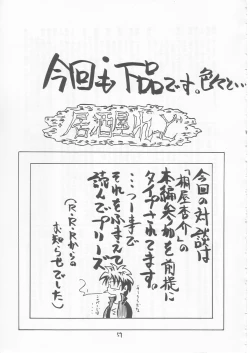 今回も下品です。色々と…
居酒屋れっど
今回の対談は
「桐屋杏介」の
本編参加を前提に
タイプされてます。
…つー事で
それをふまえて
読んでプリーズ
(R・R・Rからの
お知らせでした)
17